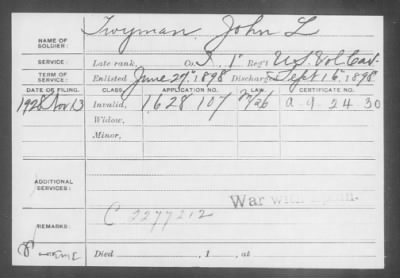 NAME OF SOLDIER: Twyman, John L
SERVICE: Late rank, Co. I, 1" Reg't U.S. Vol Cav.
TERM OF SERVICE: Enlisted June 27" 1898 Discharged Sept 15" 1898
DATE OF FILING. CLASS. APPLICATION NO. LAW. CERTIFICATE NO.
1928 Nov. 13 Invalid, 1628107 a-9 24 30
Widow,
Minor,
ADDITIONAL SERVICES:
War with Spain.
C 2277212
REMARKS:
Died , 1 , at